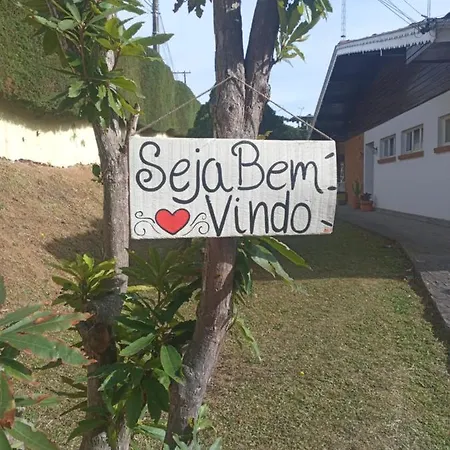 Seja Bem
Vindo